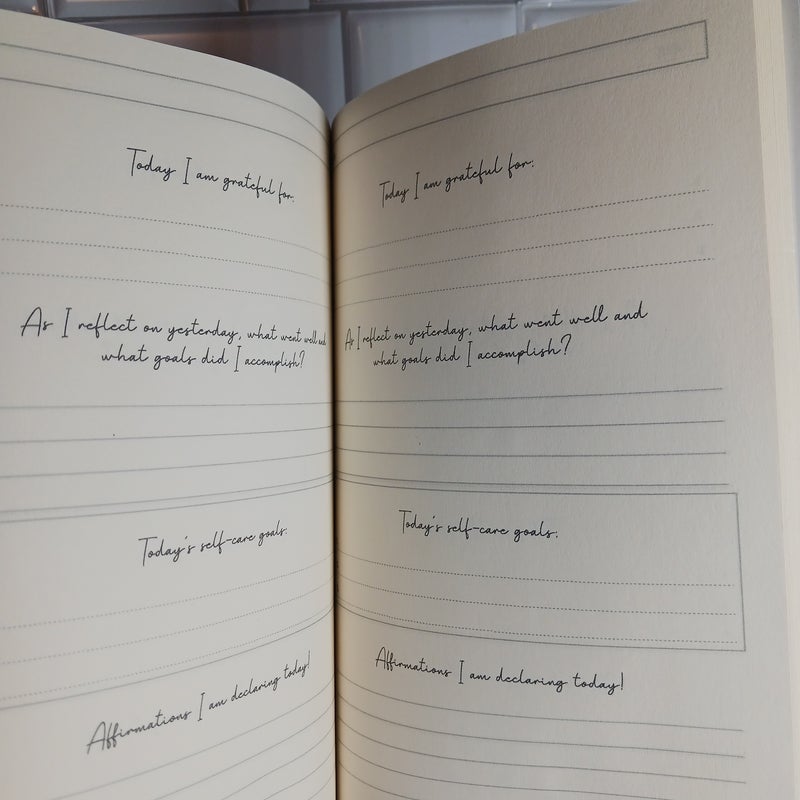 Today I am grateful for:
As I reflect on yesterday, what went well and
what goals did I accomplish?
Today's self-care goals:
Affirmations I am declaring today!
Today I am grateful for:
As I reflect on yesterday, what went well and
what goals did I accomplish?
Today's self-care goals:
Affirmations I am declaring today!